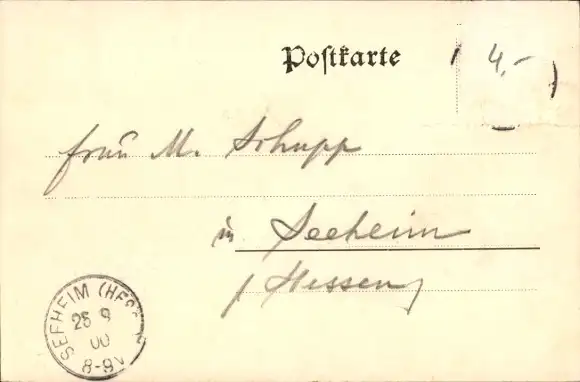 Postkarte
4,-
Frau M. Schupp
in Seeheim
/ Hessen /
SEEHEIM (HESS
25 9
00
8-9V